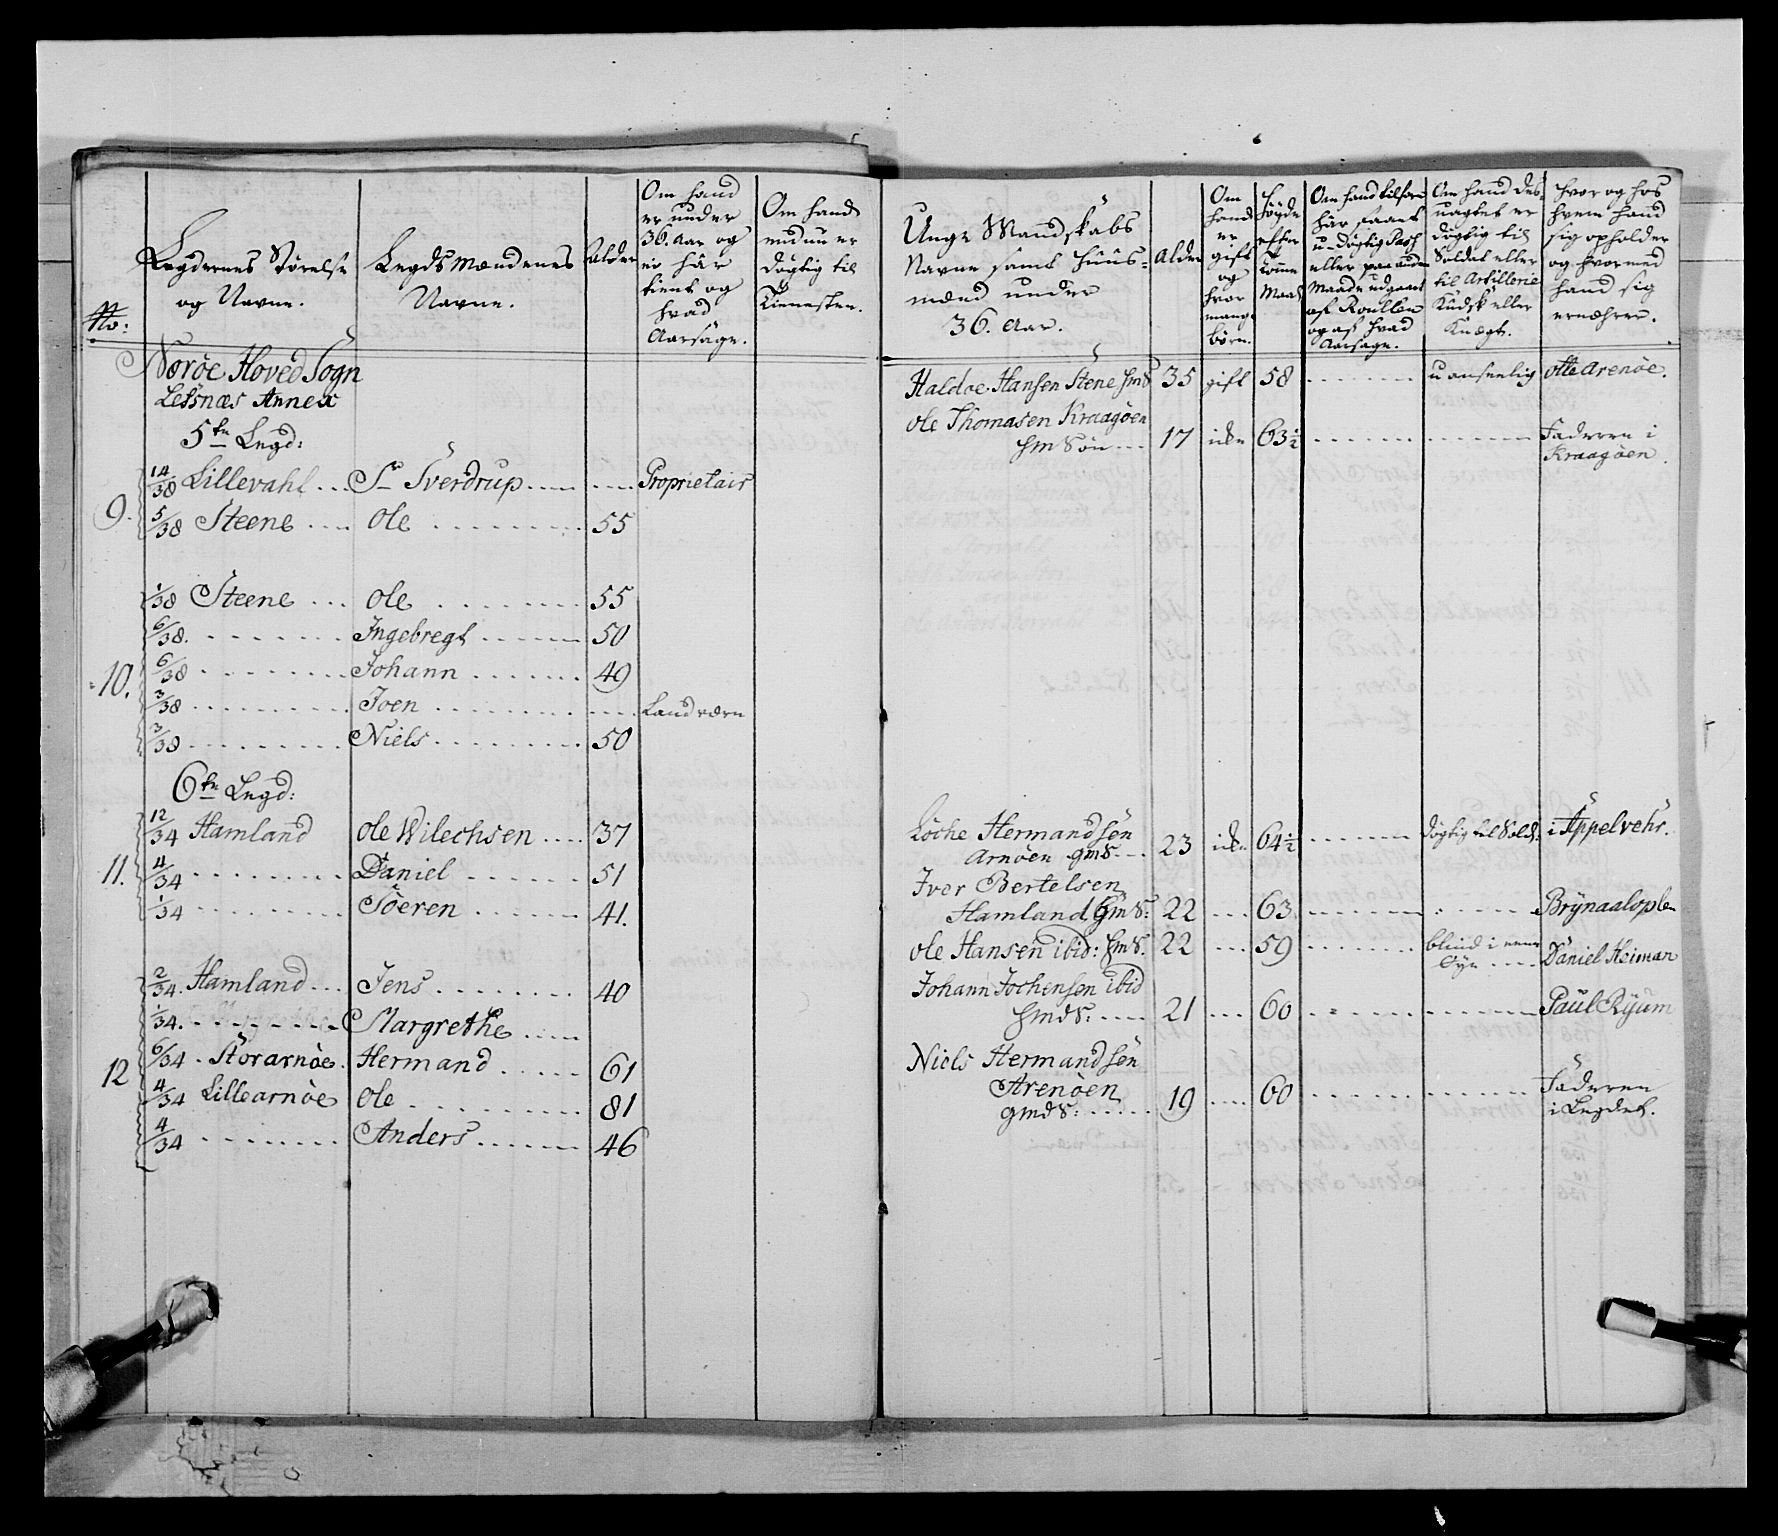 No:
Legdernes Störelse
og Navne.
Legds Mændenes
Navne.
Alder
Om hand
er under
36. Aar og
ei här
tient og
hvad
Aarsage.
Om hand
endnu er
dögtig til
Tienesten.
Næröe Hoved Sogn
Lesnæs Annex
5te Legd:
9. 14/38 Lillevahl ... Sr Sverdrup ..... .... Proprietair
5/38 Steene .... Ole ........ 55
10.
1/38 Steene ... Ole ........ 55
6/38 ........ Ingebregt ...... 50
6/38 ........ Johann ....... 49
3/38 ........ Joen ........ .... Landværn
3/38 ........ Niels ........ 50
6te Legd:
11. 12/34 Hamland Ole Wilechsen .... 37
4/34 ........ Daniel ...... 51
1/34 ........ Söeren ...... 41.
12
2/34. Hamland ... Jens ........ 40
1/34. ........ Margrethe ....
6/34 . Storarnöe . Hermand ..... 61
4/34 Lillearnöe Ole ........ 81
4/34 ........ Anders ...... 46
Unge Mandskabs
Navne samt Huus-
mænd under
36. Aar.
Alder
Om
hand
er
gift
og
hvor
mange
börn.
Höyde
efter
Tomme
Maal
Om hand tilforn
här faaet
u-dögtig Pass
eller paa anden
Maade udgaaet
af Roullen
og af hvad
Aarsage.
Om hand des-
uagtet er
dögtig til
Soldat eller
til Artillerie
Kudsk eller
Knægt.
Hvor og hos
hvem hand
sig opholder
og hvormed
hand sig
ernæhrer.
Haldoe Hansen Stene HmS 35 gift 58 ...... uanseelig Otte Arenöe.
Ole Thomasen Kraagöen
Hm Sön ... 17 icke 63½ ...... ...... Faderen i
Kraagöen.
Löche Hermandsön
Arnöen GmS ... 23 icke 64½ ...... dögtig til Sold: i Appelvehr.
Iver Bertelsen
Hamland GmS: 22 ... 63 ...... ...... Brynaalople
Ole Hansen ibid: HmS. 22 ... 59 ...... blind i eene
Öye ... Daniel Heiman
Johann Jochensen ibid
HmdS: .... 21 ... 60 ...... ...... Paul Ryum
Niels Hermandsön
Arenöen
GmdS: ..... 19 ... 60 ...... ...... Faderen
i Legdet.